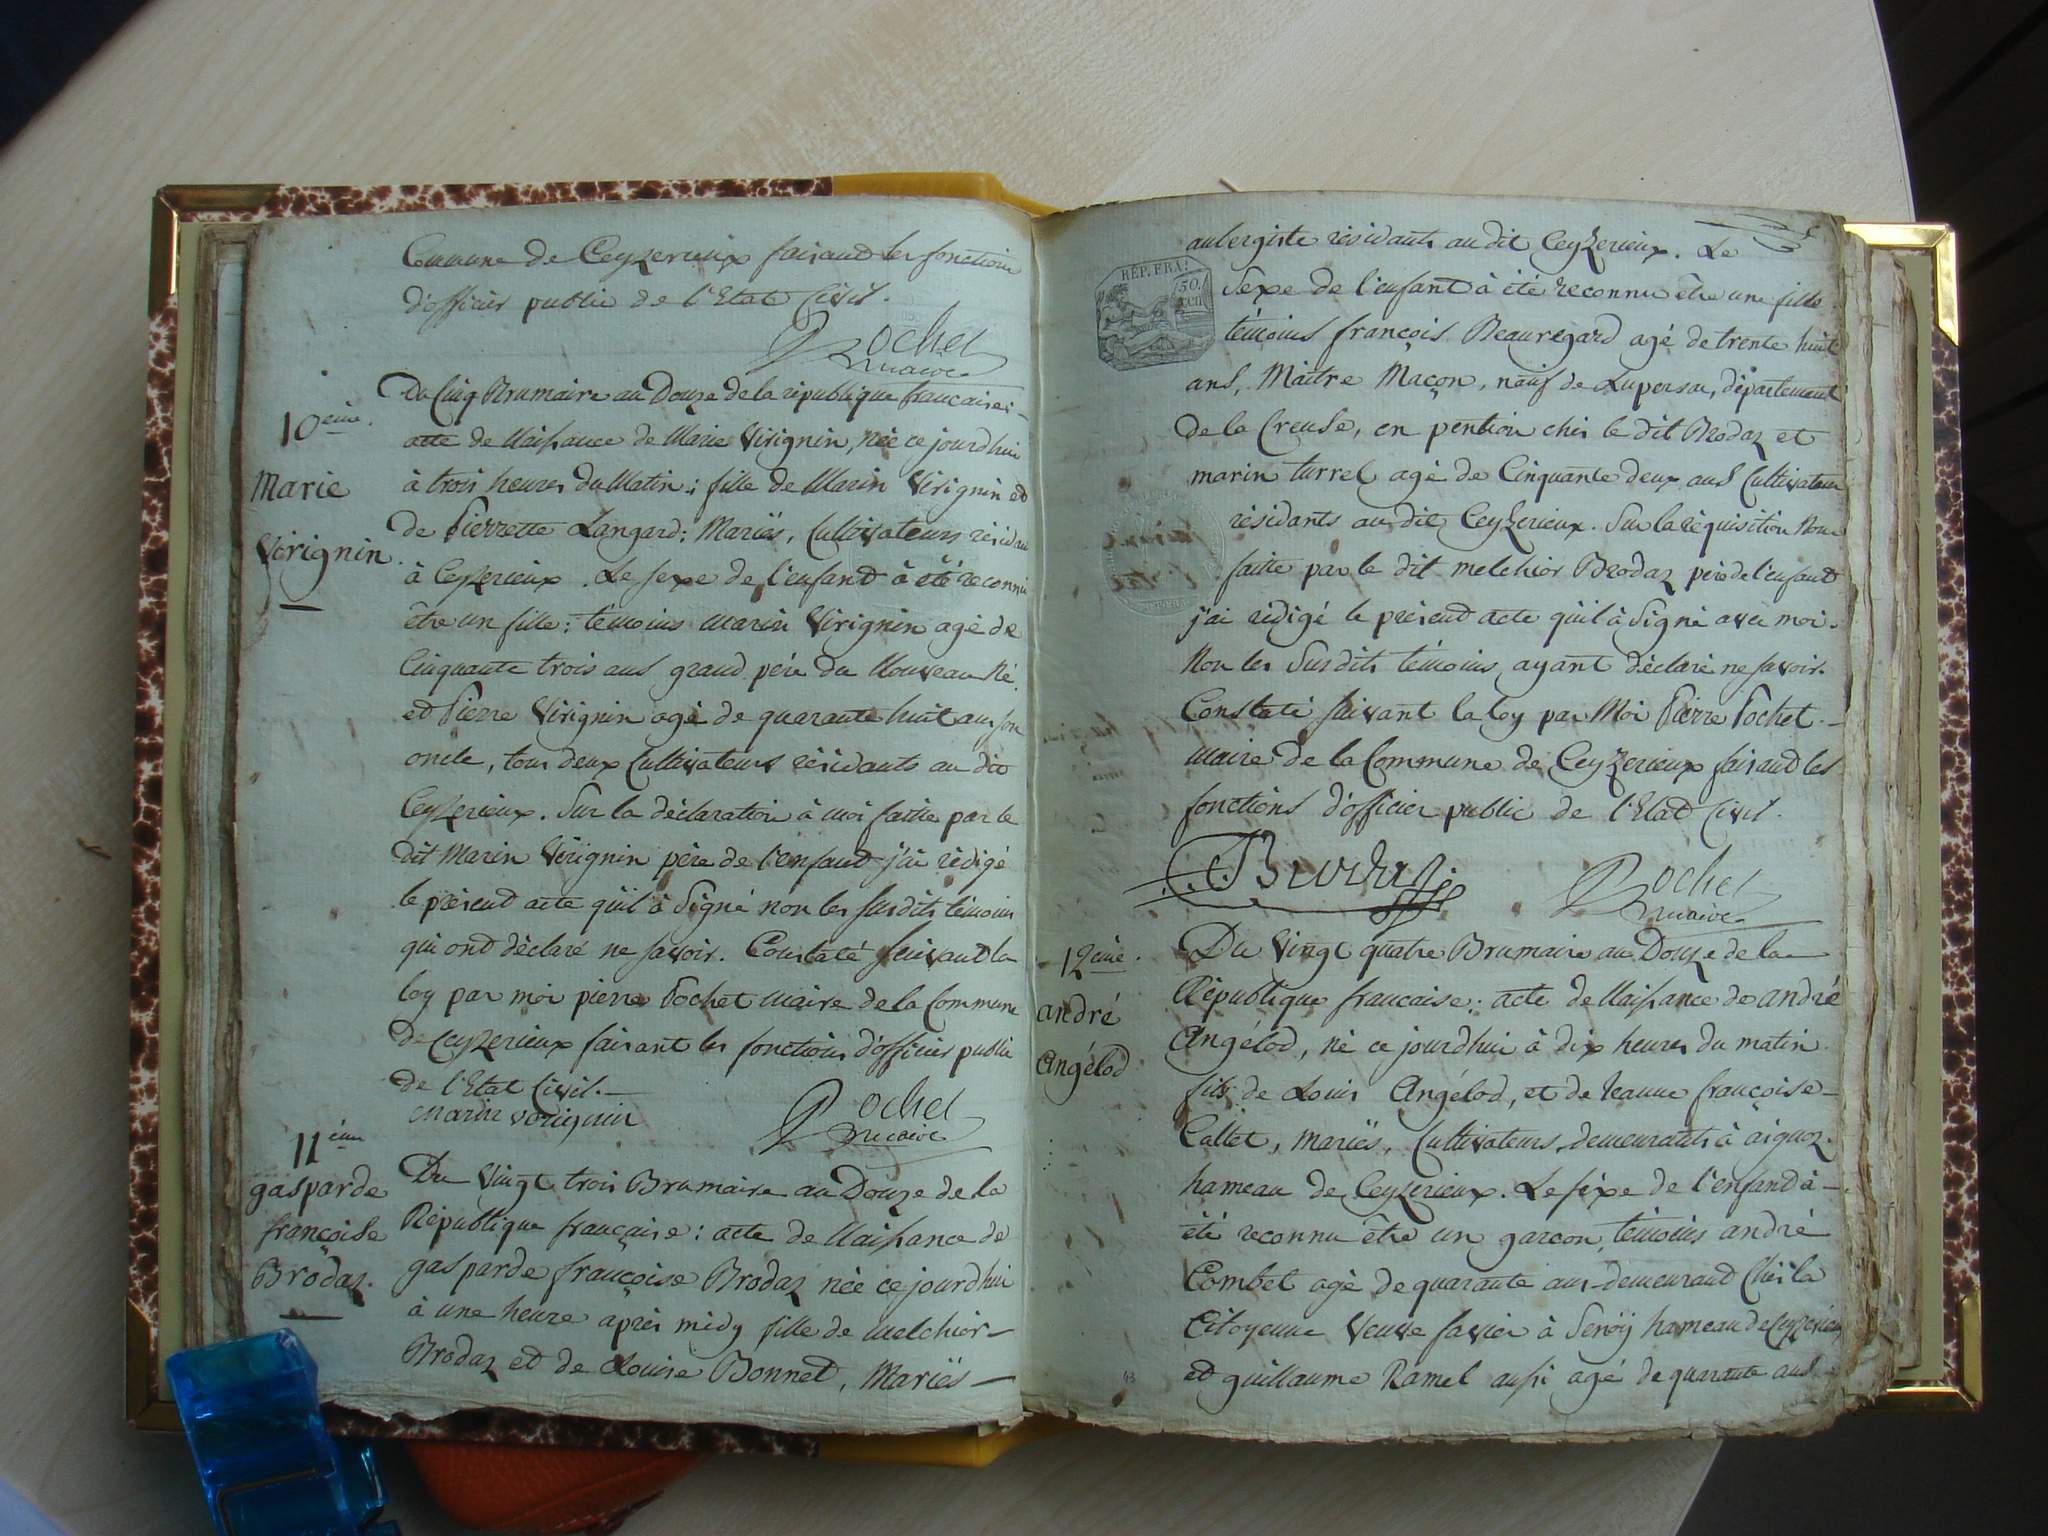 Commune de Ceyzerieux faisant les fonctions
d'officier public de l'Etat Civil.
Pochet
maire
10ème.
Marie
Virignin.
Du Cinq Brumaire an Douze de la république francaise:
acte de Naissance de Marie Virignin, née ce jourdhui
à trois heures du Matin; fille de Marin Virignin et
de Pierrette Langard; Mariés, Cultivateurs résidan
à Ceyzerieux. Le sexe de l'enfant à été reconnu
être un fille: témoins marin Virignin agé de
Cinquante trois ans grand père du Nouveau Né.
et Pierre Virignin agé de quarante huit ans son
oncle, tous deux Cultivateurs résidants au dit
Ceyzerieux. Sur la déclaration à moi faitte par le
dit Marin Virignin père de l'enfant j'ai rédigé
le présent acte qu'il à Signé non les susdits témoins
qui ont déclaré ne savoir. Constaté suivant la
loy par moi pierre Pochet maire de la Commune
de Ceyzerieux faisant les fonctions d'officier public
de l'Etat Civil.—
marin verignin
Pochet
maire
11ème
gasparde
françoise
Brodaz.
Du Vingt trois Brumaire an Douze de la
République française: acte de Naissance de
gasparde françoise Brodaz née ce jourdhui
à une heure après midy fille de melchior—
Brodaz et de Louise Bonnet, Mariés—
aubergiste résidants au dit Ceyzerieux. Le
RÉP. FRA.
50.
cen
Sexe de l'enfant à été reconnu être une fille
témoins françois Beauregard agé de trente huit
ans, Maitre Maçon, natif de Lupersac, département
de la Creuse, en pention chés le dit Brodaz et
marin turrel agé de Cinquante deux ans Cultivateur
résidants au dit Ceyzerieux. Sur la réquisition Nous
faitte par le dit melchior Brodaz père de l'enfant
j'ai rédigé le présent acte qu'il à Signé avec moi.
Non les Susdits témoins ayant déclaré ne savoir.
Constaté suivant la loy par Moi Pierre Pochet—
maire de la Commune de Ceyzerieux faisant les
fonctions d'officier public de l'Etat Civil.
Brodaz
Pochet
maire
12ème.
andré
Angélod
Du Vingt quatre Brumaire an Douze de la—
République francaise: acte de Naissance de andré
Angélod, né ce jourdhui à dix heures du matin
fils de Louis Angélod, et de Jeanne françoise—
Callet, mariés, Cultivateurs, demeurants à aignoz
hameau de Ceyzerieux. Le sèxe de l'enfant à—
été reconnu être un garcon, témoins andré
Combet agé de quarante ans demeurant Chés la
Citoyenne Veuve favier à Senoÿ hameau de Ceyzerieux
et guillaume Ramel aussi agé de quarante ans
43